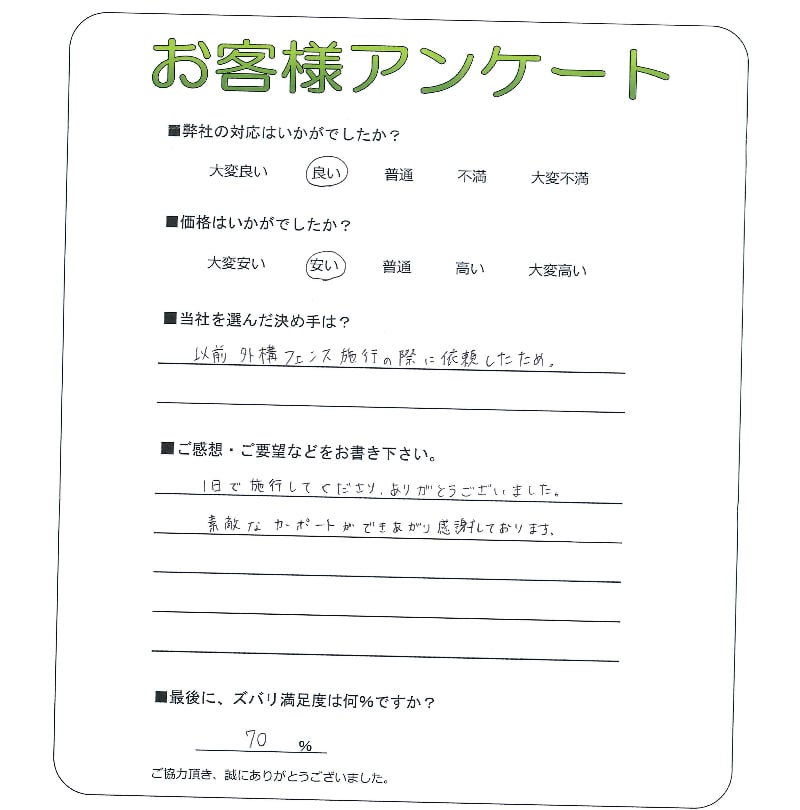 お客様アンケート
■弊社の対応はいかがでしたか?
大変良い 良い 普通 不満 大変不満
■価格はいかがでしたか?
大変安い 安い 普通 高い 大変高い
■当社を選んだ決め手は?
以前外構フェンス施行の際に依頼したため。
■ご感想・ご要望などをお書き下さい。
1日で施行してくださり、ありがとうございました。
素敵なカーポートができあがり感謝しております。
■最後に、ズバリ満足度は何%ですか?
70 %
ご協力頂き、誠にありがとうございました。